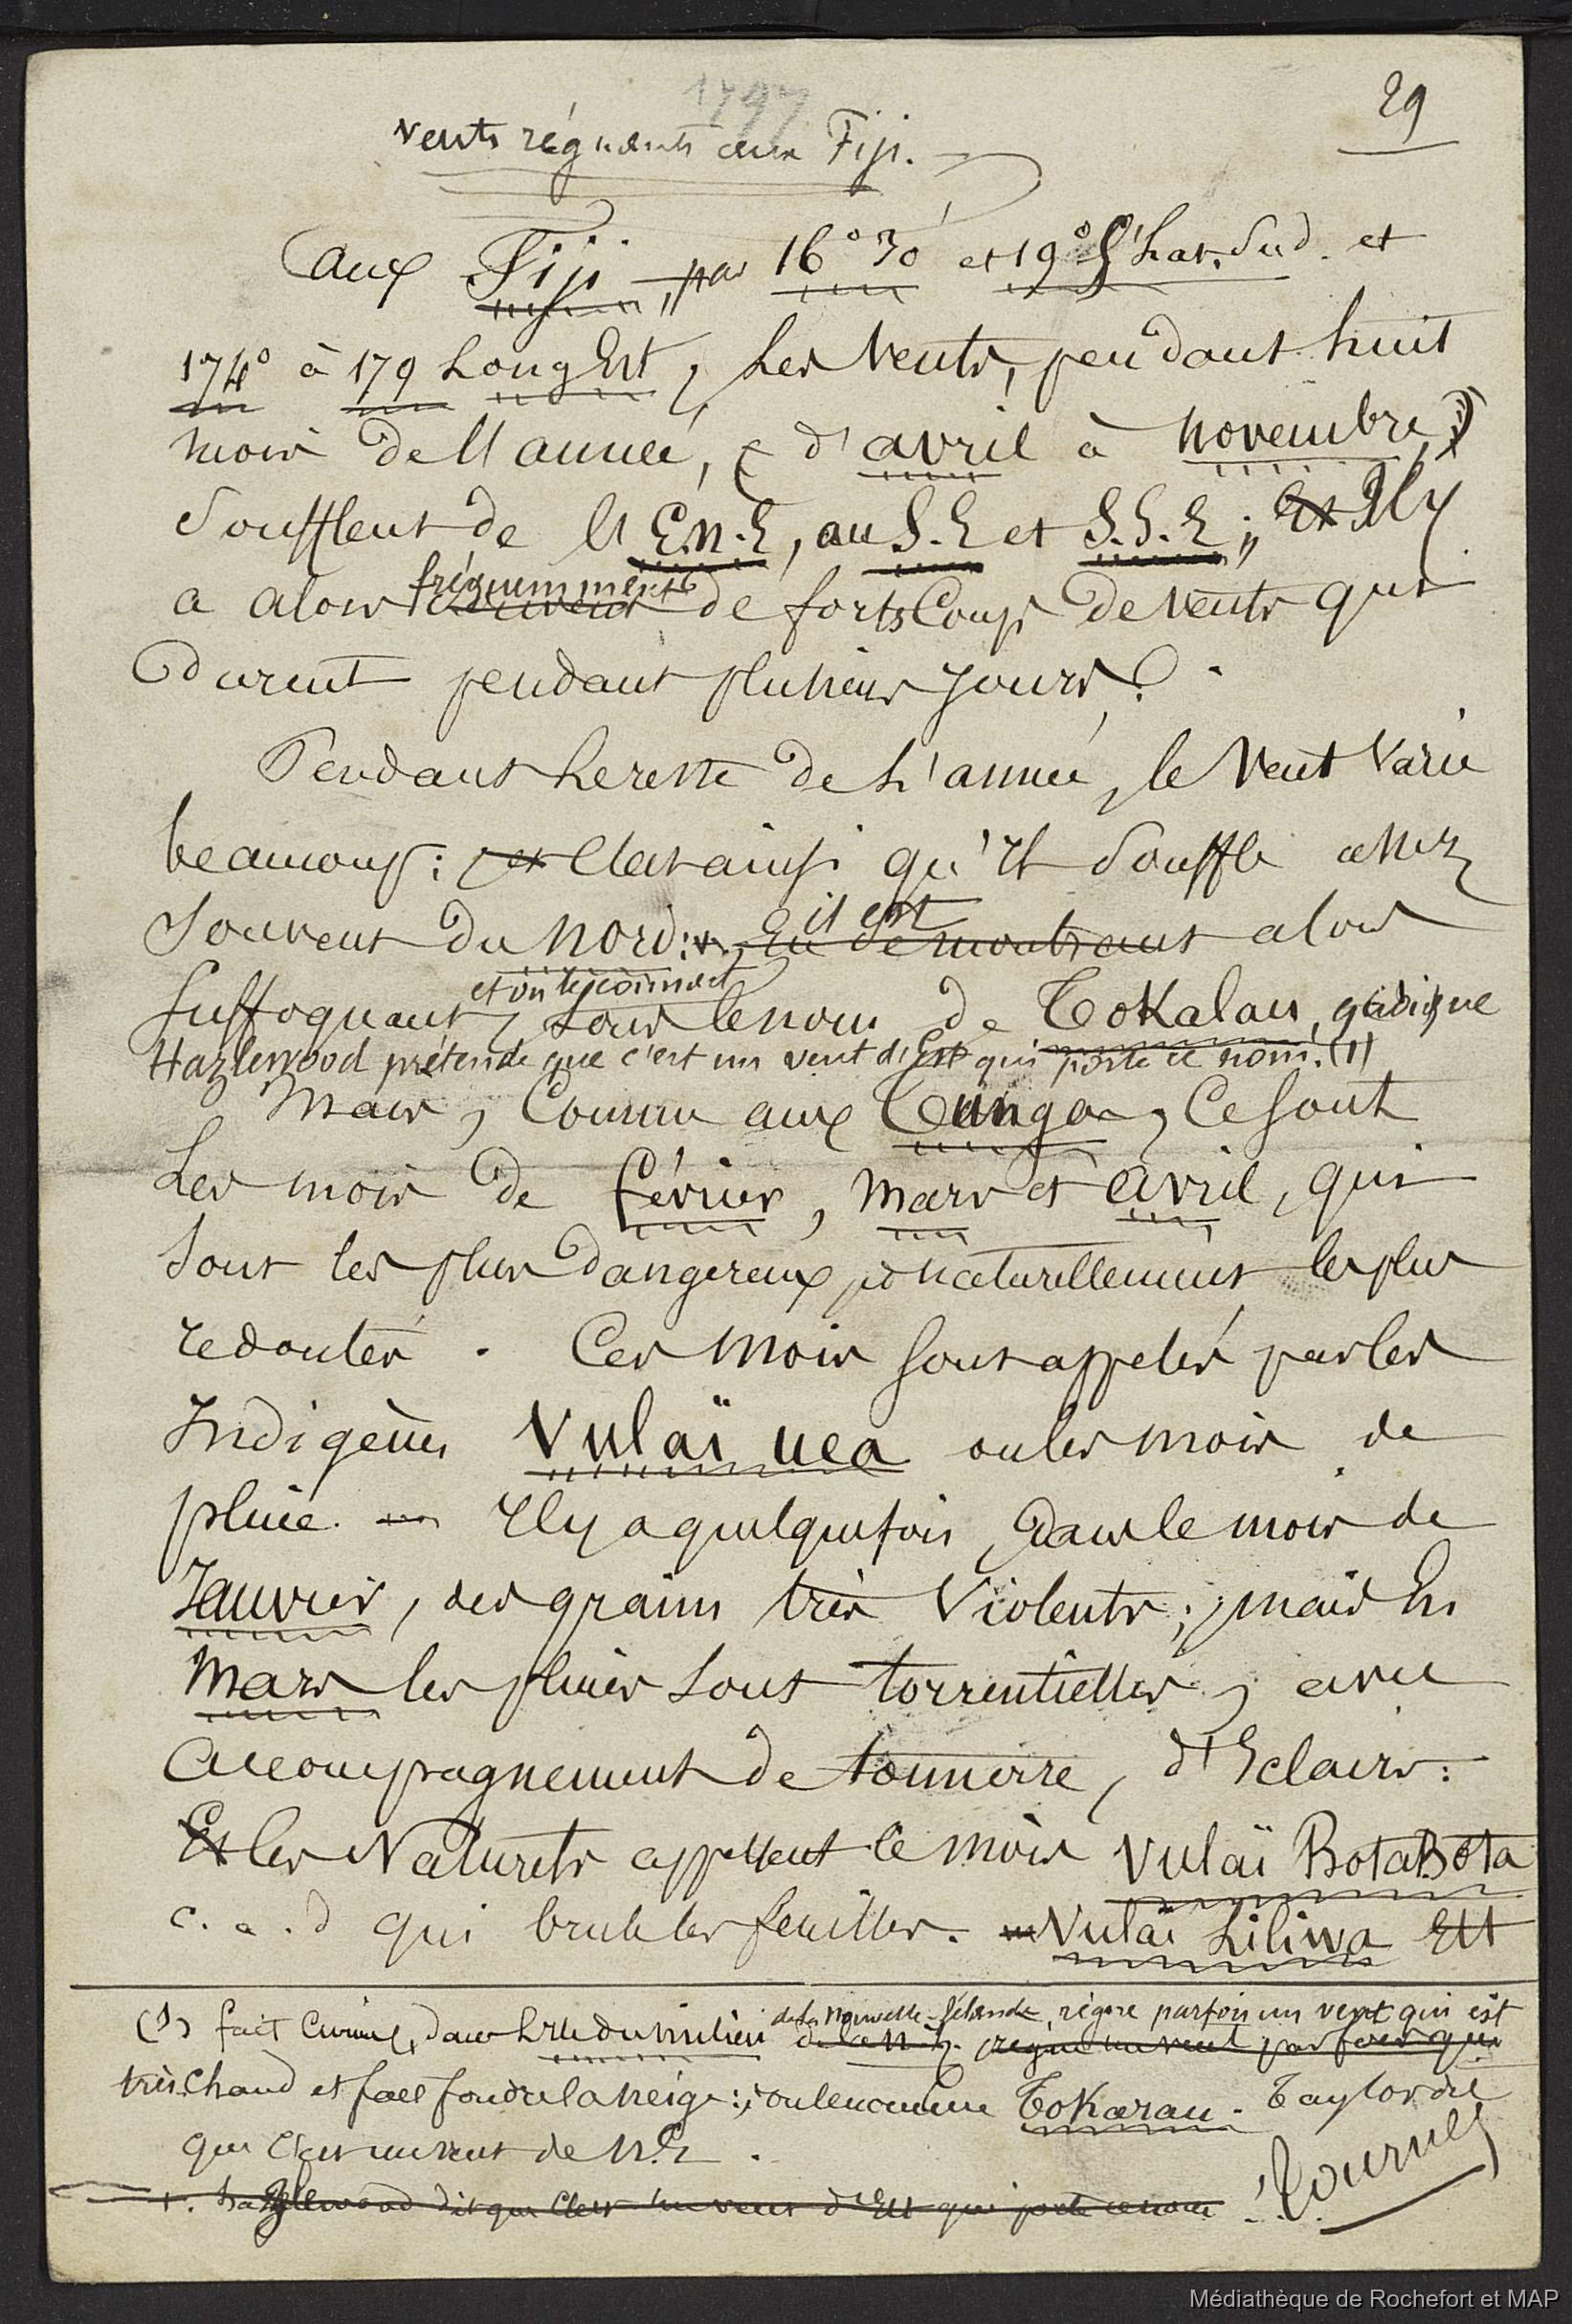 1797
29
Vents régnants aux Fiji.
Aux Fiji, par 16° 30' et 19° Lat. Sud. et
174° à 179 Long Est, les Vents, pendant huit
mois de l'année, (d'avril à novembre)
soufflent de l'E.N.E, au S.E et S.S.E; Et Il y
fréquemment
a alors souvent de forts Coups de vents qui
durent pendant plusieurs jours.
Pendant le reste de l'année, le vent varie
beaucoup: et c'est ainsi qu'il souffle assez
il est
souvent du nord: alors
et on le connaît
suffoquant, sous le nom de Tokalau, quoique
Hazlewood prétende que c'est un vent d'Est qui porte ce nom. (1)
Mais, Comme aux Tunga, Ce sont
Les mois de février, mars et avril, qui
sont les plus dangereux, et naturellement les plus
redoutés. Ces mois sont appelés par les
Indigènes Vulaï uca ou les mois de
pluie. — Il y a quelquefois, dans le mois de
Janvier, des grains très violents; mais En
Mars les pluies sont torrentielles, avec
accompagnement de tonnerre, d'Eclairs:
Et les Naturels appellent ce mois Vulaï BotaBota
c. a. d qui brule les feuilles. — Vulaï Liliwa Est
de la Nouvelle-Zélande, règne parfois un vent qui est
(1) fait curieux, dans l'Ile du milieu de la N. Z. règne un vent parfois qui
très chaud et fait fondre la neige: on le nomme Tokarau. Taylor dit
que c'est un vent de N.E.
1. Hazlewood dit que c'est un vent d'Est qui porte ce nom
Tournez
Médiathèque de Rochefort et MAP